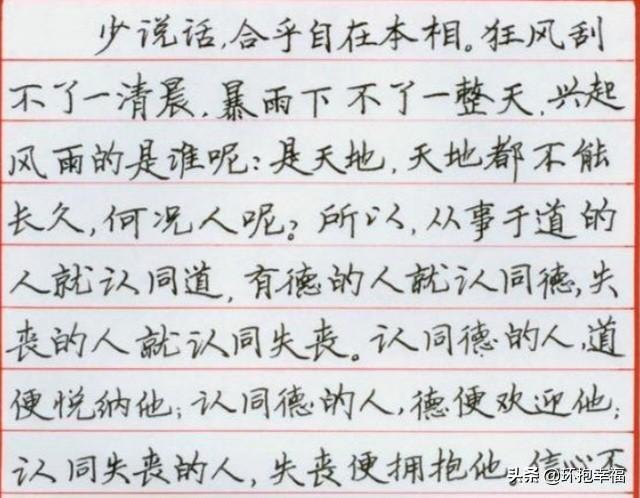 少说话,合乎自在本相。狂风刮
不了一清晨,暴雨下不了一整天,兴起
风雨的是谁呢:是天地,天地都不能
长久,何况人呢?所以,从事于道的
人就认同道,有德的人就认同德,失
丧的人就认同失丧。认同德的人,道
便悦纳他;认同德的人,德便欢迎他;
认同失丧的人,失丧便拥抱他,信心不
头条 @环抱幸福